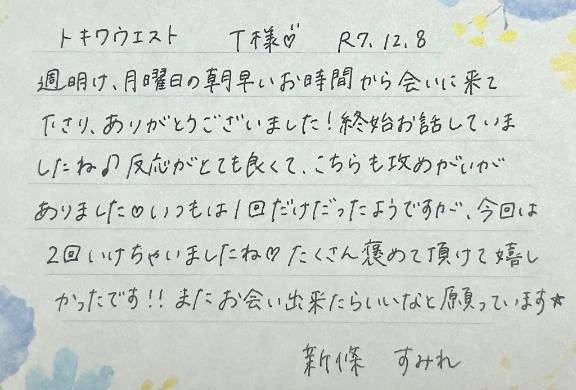 トキワウエスト T様♡ R7.12.8
週明け、月曜日の朝早いお時間から会いに来て
下さり、ありがとうございました！終始お話していま
したね♪反応がとても良くて、こちらも攻めがいが
ありました♡いつもは1回だけだったようですが、今回は
2回いけちゃいましたね♡たくさん褒めて頂けて嬉し
かったです!!またお会い出来たらいいなと願っています★
新條 すみれ